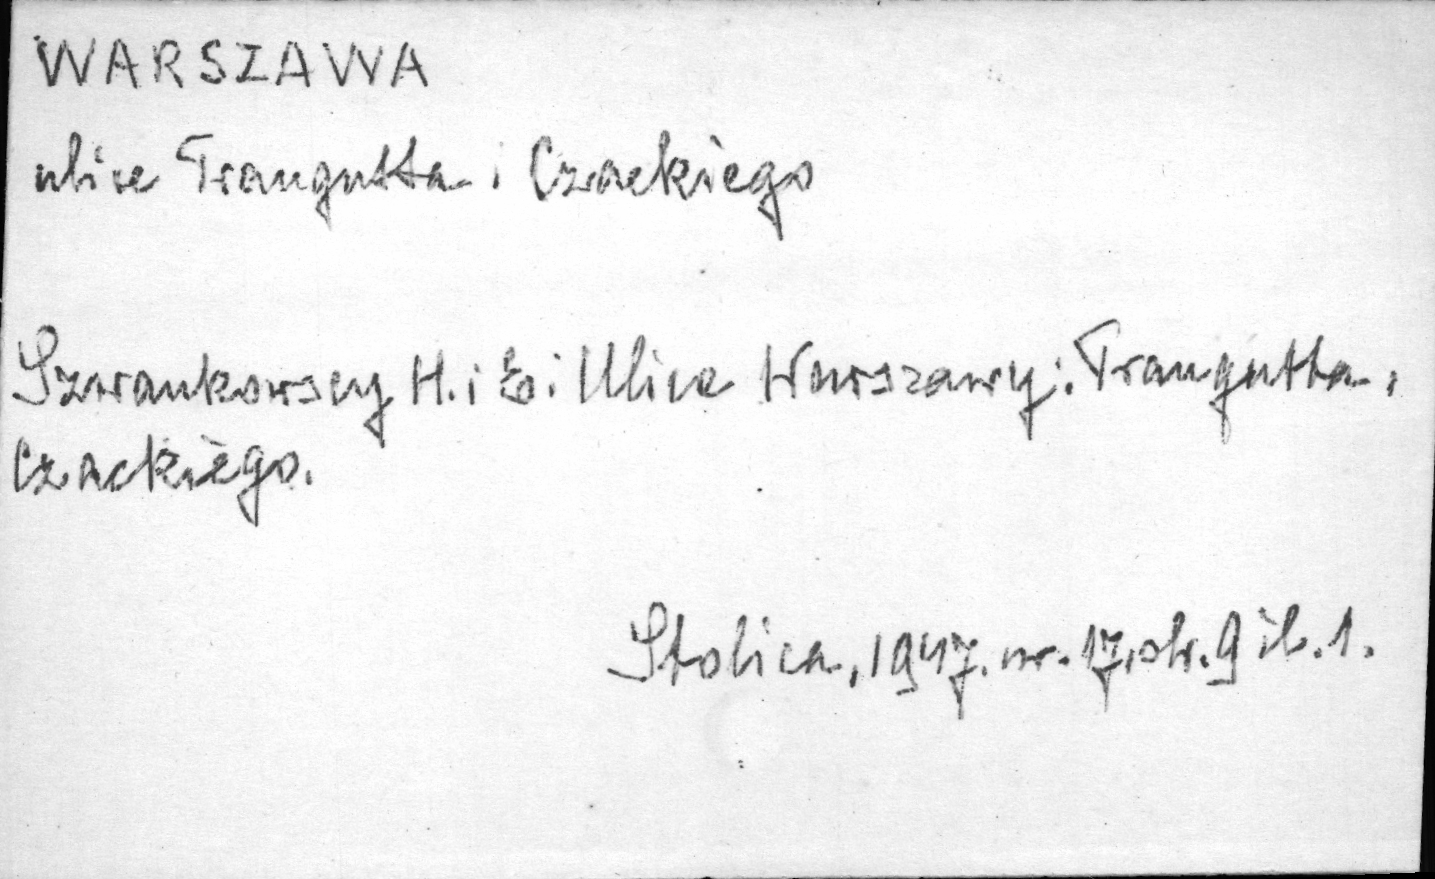 WARSZAWA
ulice Traugutta i Czackiego
Szwankowscy H. i E.: Ulice Warszawy: Traugutta,
Czackiego.
Stolica, 1947. nr. 17, str. 9 il. 1.